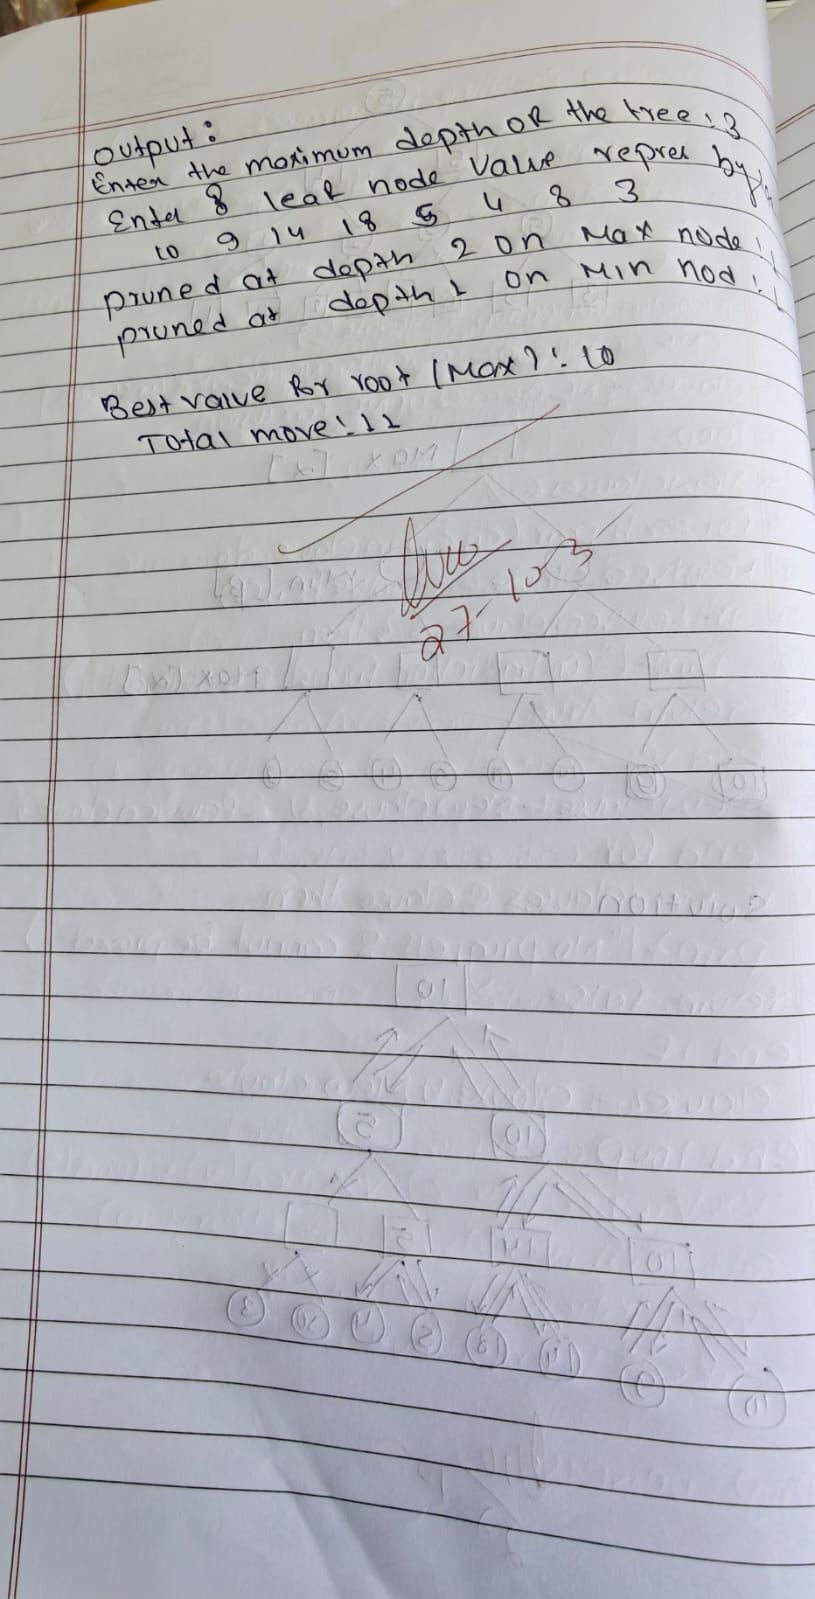 output:
Enter the maximum depth OF the tree: 3
Enter 8 leaf node Value repres by
10 9 14 18 5 4 8 3
pruned at depth 2 on Max node:
pruned at depth 1 on Min nod:
Best value for root (Max): 10
Total move: 11
27-10-3